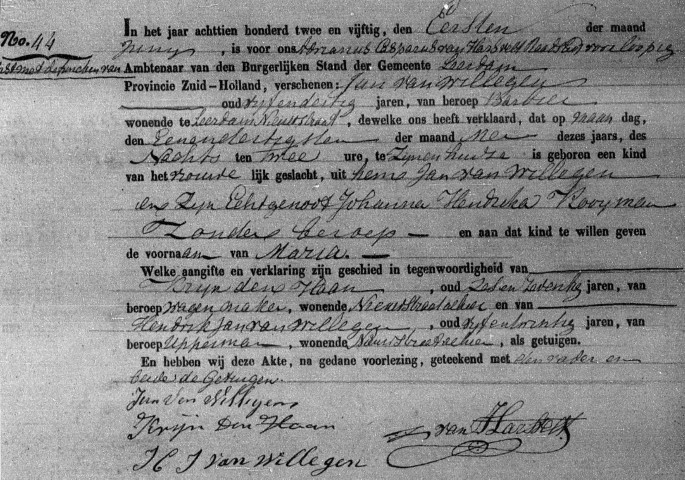 No. 44
In het jaar achttien honderd twee en vijftig, den Eersten der maand
Juny, is voor ons Adrianus Casparus van Hasselt Raadslid voorloopig
Ambtenaar van den Burgerlijken Stand der Gemeente Leerdam
Provincie Zuid-Holland, verschenen: Jan van Willegen
oud vyfendertig jaren, van beroep Barbier
wonende te Leerdam Nieuwstraat, dewelke ons heeft verklaard, dat op maandag,
den Eenendertigsten der maand Mei dezes jaars, des
Nachts ten twee ure, te Zynen huize is geboren een kind
van het vrouwelijk geslacht, uit hem Jan van Willegen
en Zyn Echtgenoot Johanna Hendrika Kooyman
Zonder beroep — en aan dat kind te willen geven
de voornaam van Maria. —
Welke aangifte en verklaring zijn geschied in tegenwoordigheid van
Kryn den Haan, oud Zeven Twentig jaren, van
beroep wagenmaker, wonende Nieuwstraat alhier en van
Hendrik Jan van Willegen, oud vyfentwintig jaren, van
beroep Opperman, wonende Nieuwstraat alhier, als getuigen.
En hebben wij deze Akte, na gedane voorlezing, geteekend met den vader en
beide de Getuigen.
Jan van Willegen
Krijn Den Haan
van Hasselt
H J van Willegen